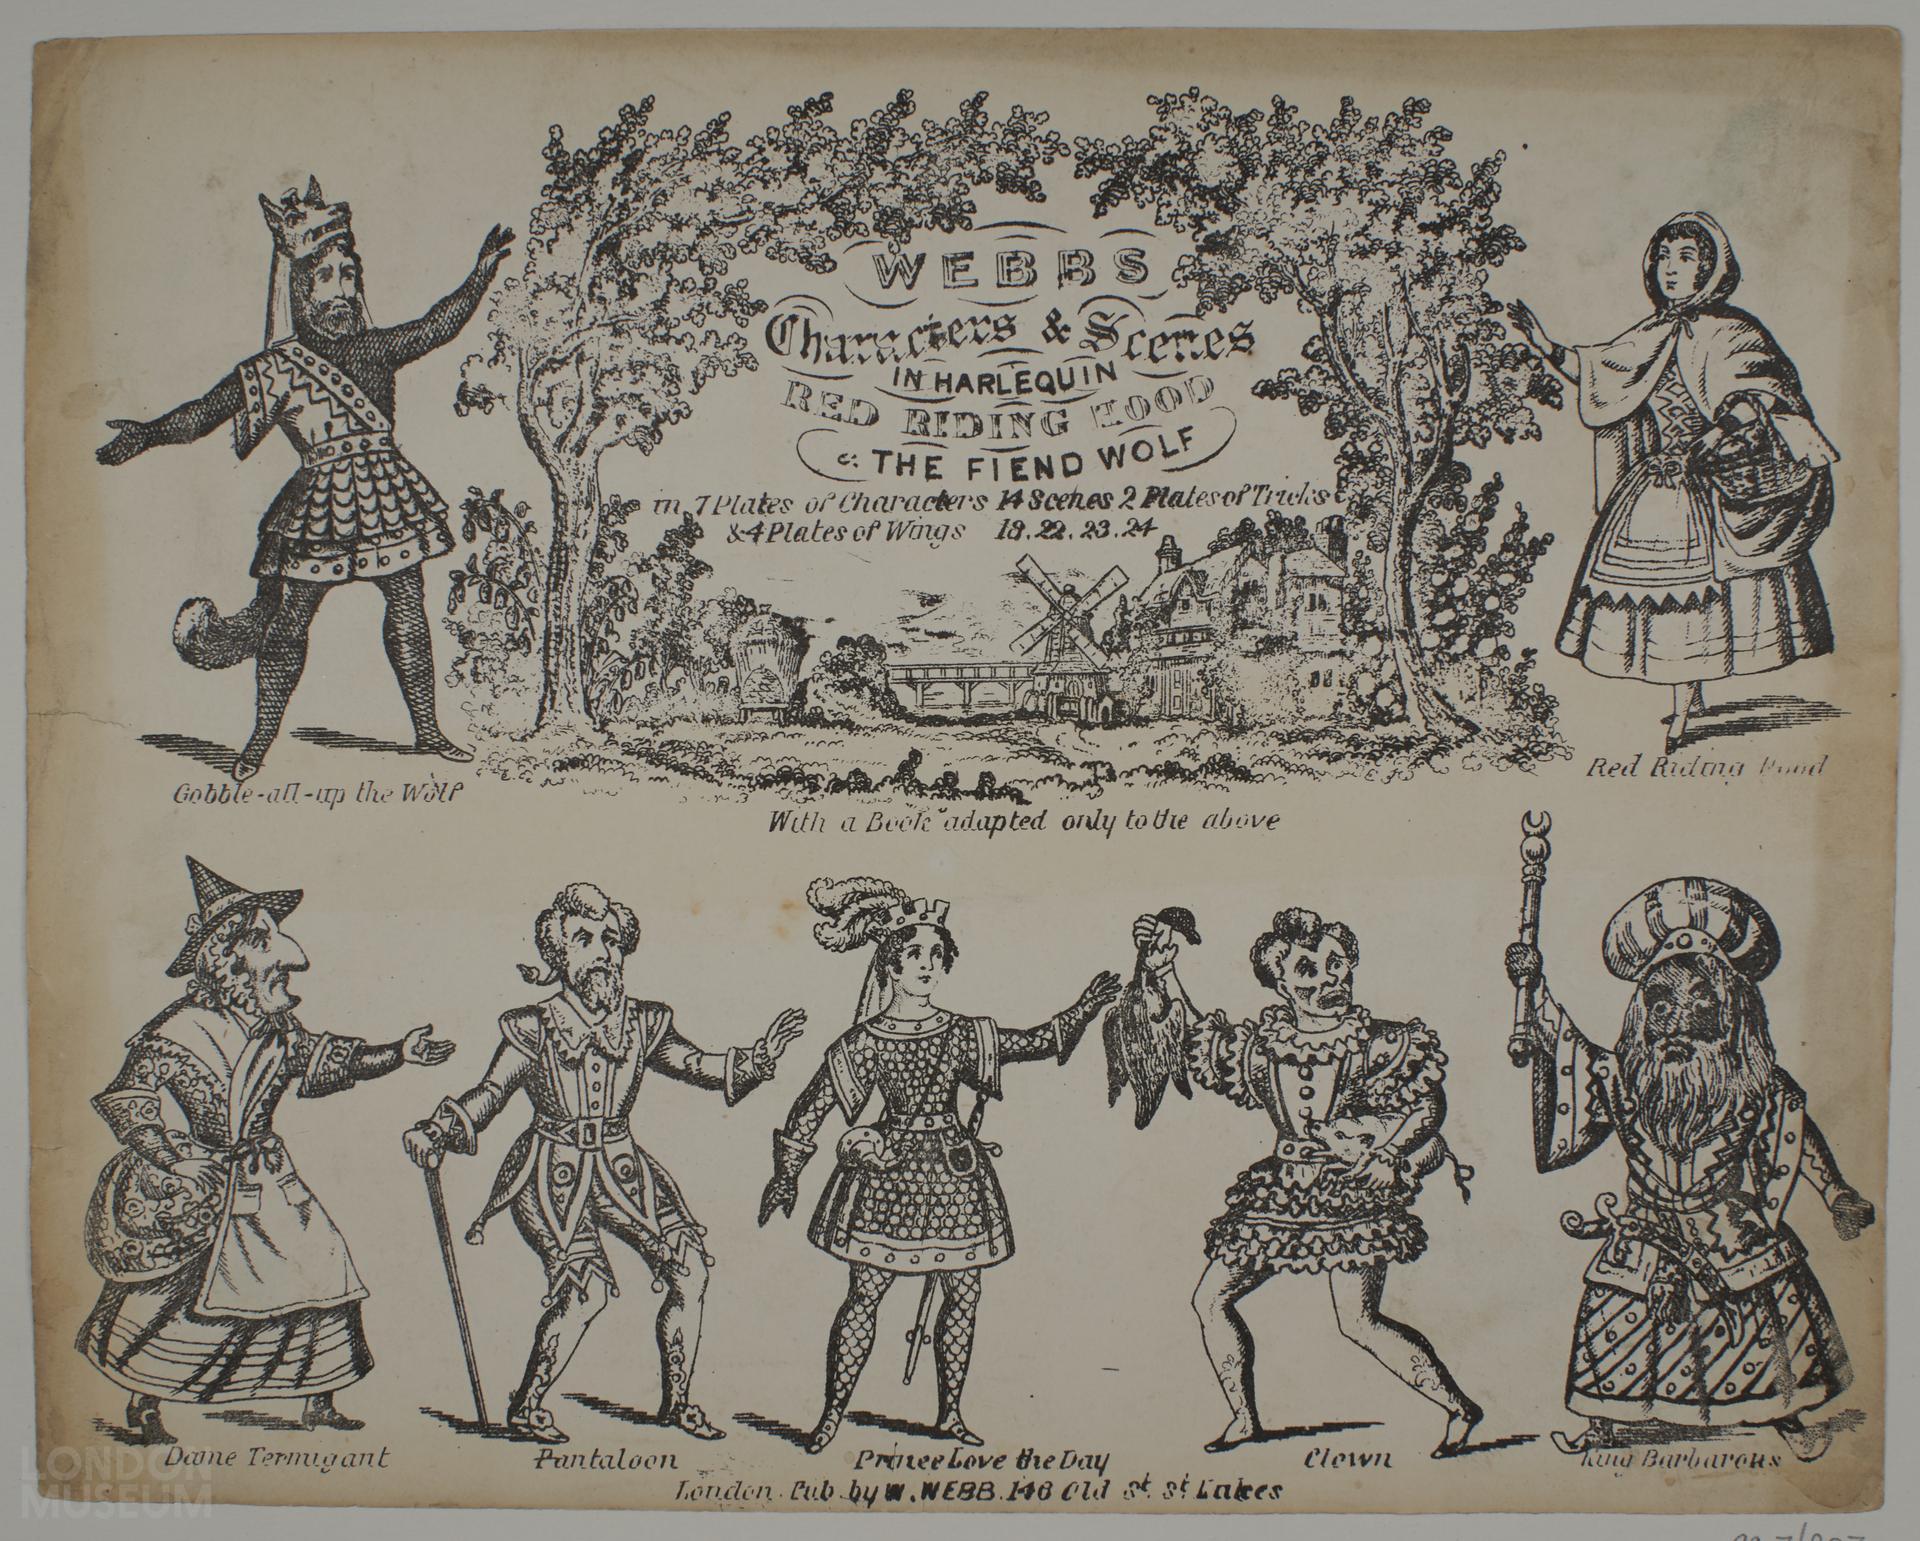 WEBBS
Characters & Scenes
IN HARLEQUIN
RED RIDING HOOD
THE FIEND WOLF
in 7 Plates of Characters 14 Scenes 2 Plates of Tricks
& 4 Plates of Wings 18.22.23.24
Gobble-all-up the Wolf
Red Riding Hood
With a Book adapted only to the above
Dame Termigant
Pantaloon
Prince Love the Day
Clown
King Barbarous
London. Pub. by W. WEBB. 146 Old St. St. Lukes
LONDON
MUSEUM